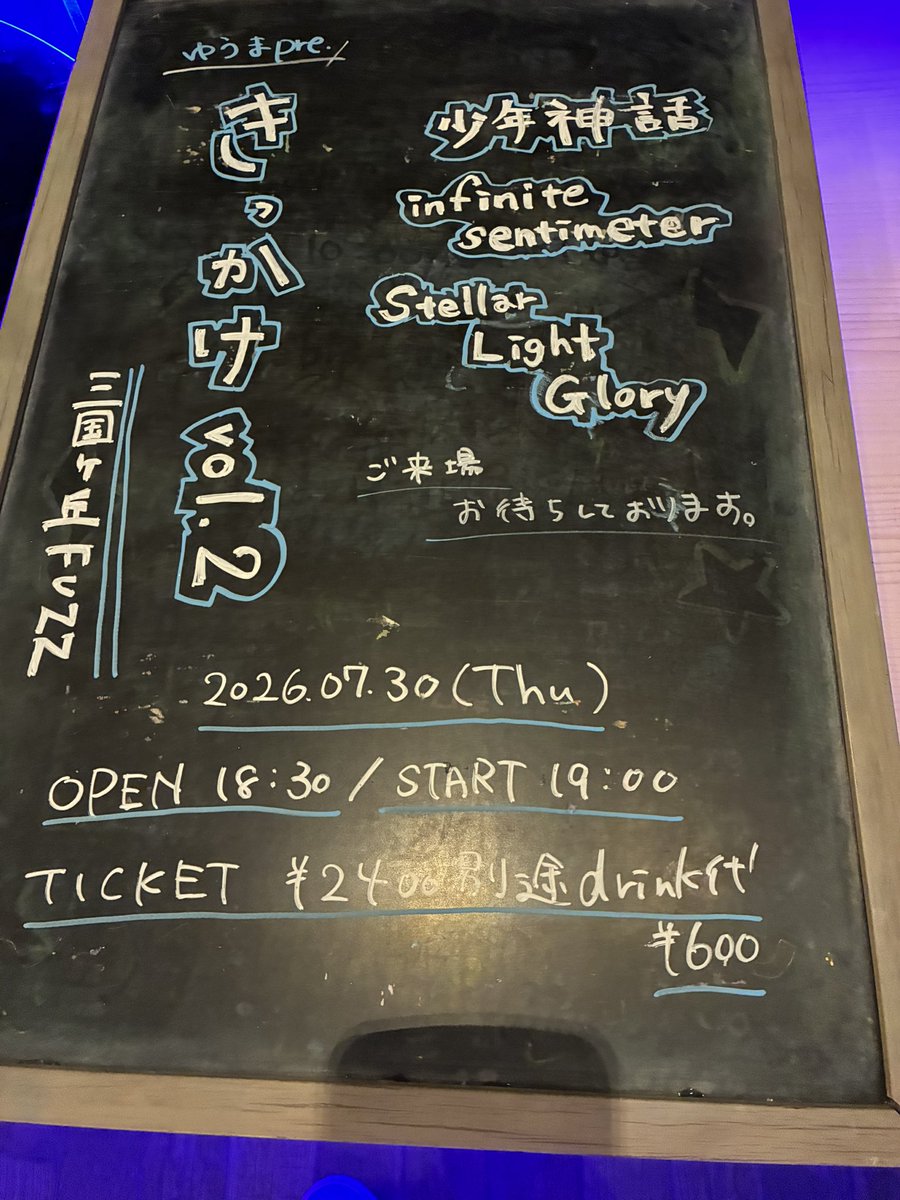 ゆうまpre.
きっかけ vol.2
三国ヶ丘FUZZ
少年神話
infinite
sentimeter
Stellar
Light
Glory
ご来場
お待ちしております。
2026.07.30(Thu)
OPEN 18:30 / START 19:00
TICKET ¥2400 別途drink代
¥600